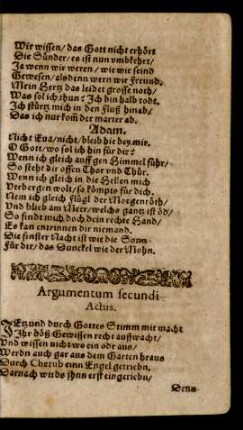 Wir wissen/das Gott nicht erhört
Die Sünder/es ist nun vmbkehrt/
Ja wenn wir weren/wie wir seind
Gewesen/alsdenn wern wir Freund.
Mein Hertz das leidet grosse noth/
Was sol ich thun? Ich bin halb todt.
Ich stürtz mich in den Fluß hinab/
Das ich nur kom der marter ab.
Adam.
Nicht Eua/nicht/bleib hie bey mir.
O Gott/wo sol ich hin für dir?
Wenn ich gleich auff gen Himmel führ/
So steht dir offen Thor vnd Thür.
Wenn ich gleich in die Hellen mich
Verbergen wolt/so kömpts für dich.
Nem ich gleich flügl der Morgenröth/
Vnd blieb am Meer/welchs gantz ist öd/
So findt mich doch dein rechte Hand/
Es kan entrinnen dir niemand.
Die finster Nacht ist wie die Sonn
Für dir/das Dunckel wie der Mohn.
Argumentum secundi
Actus.
JEtzund durch Gottes Stimm mit macht
Ihr böß Gewissen recht auffwacht/
Vnd wissen nicht wo ein odr aus/
Werdn auch gar aus dem Garten hraus
Durch Cherub einn Engel getriebn,
Darnach wirds ihnn erst eingeriebn/
Denn